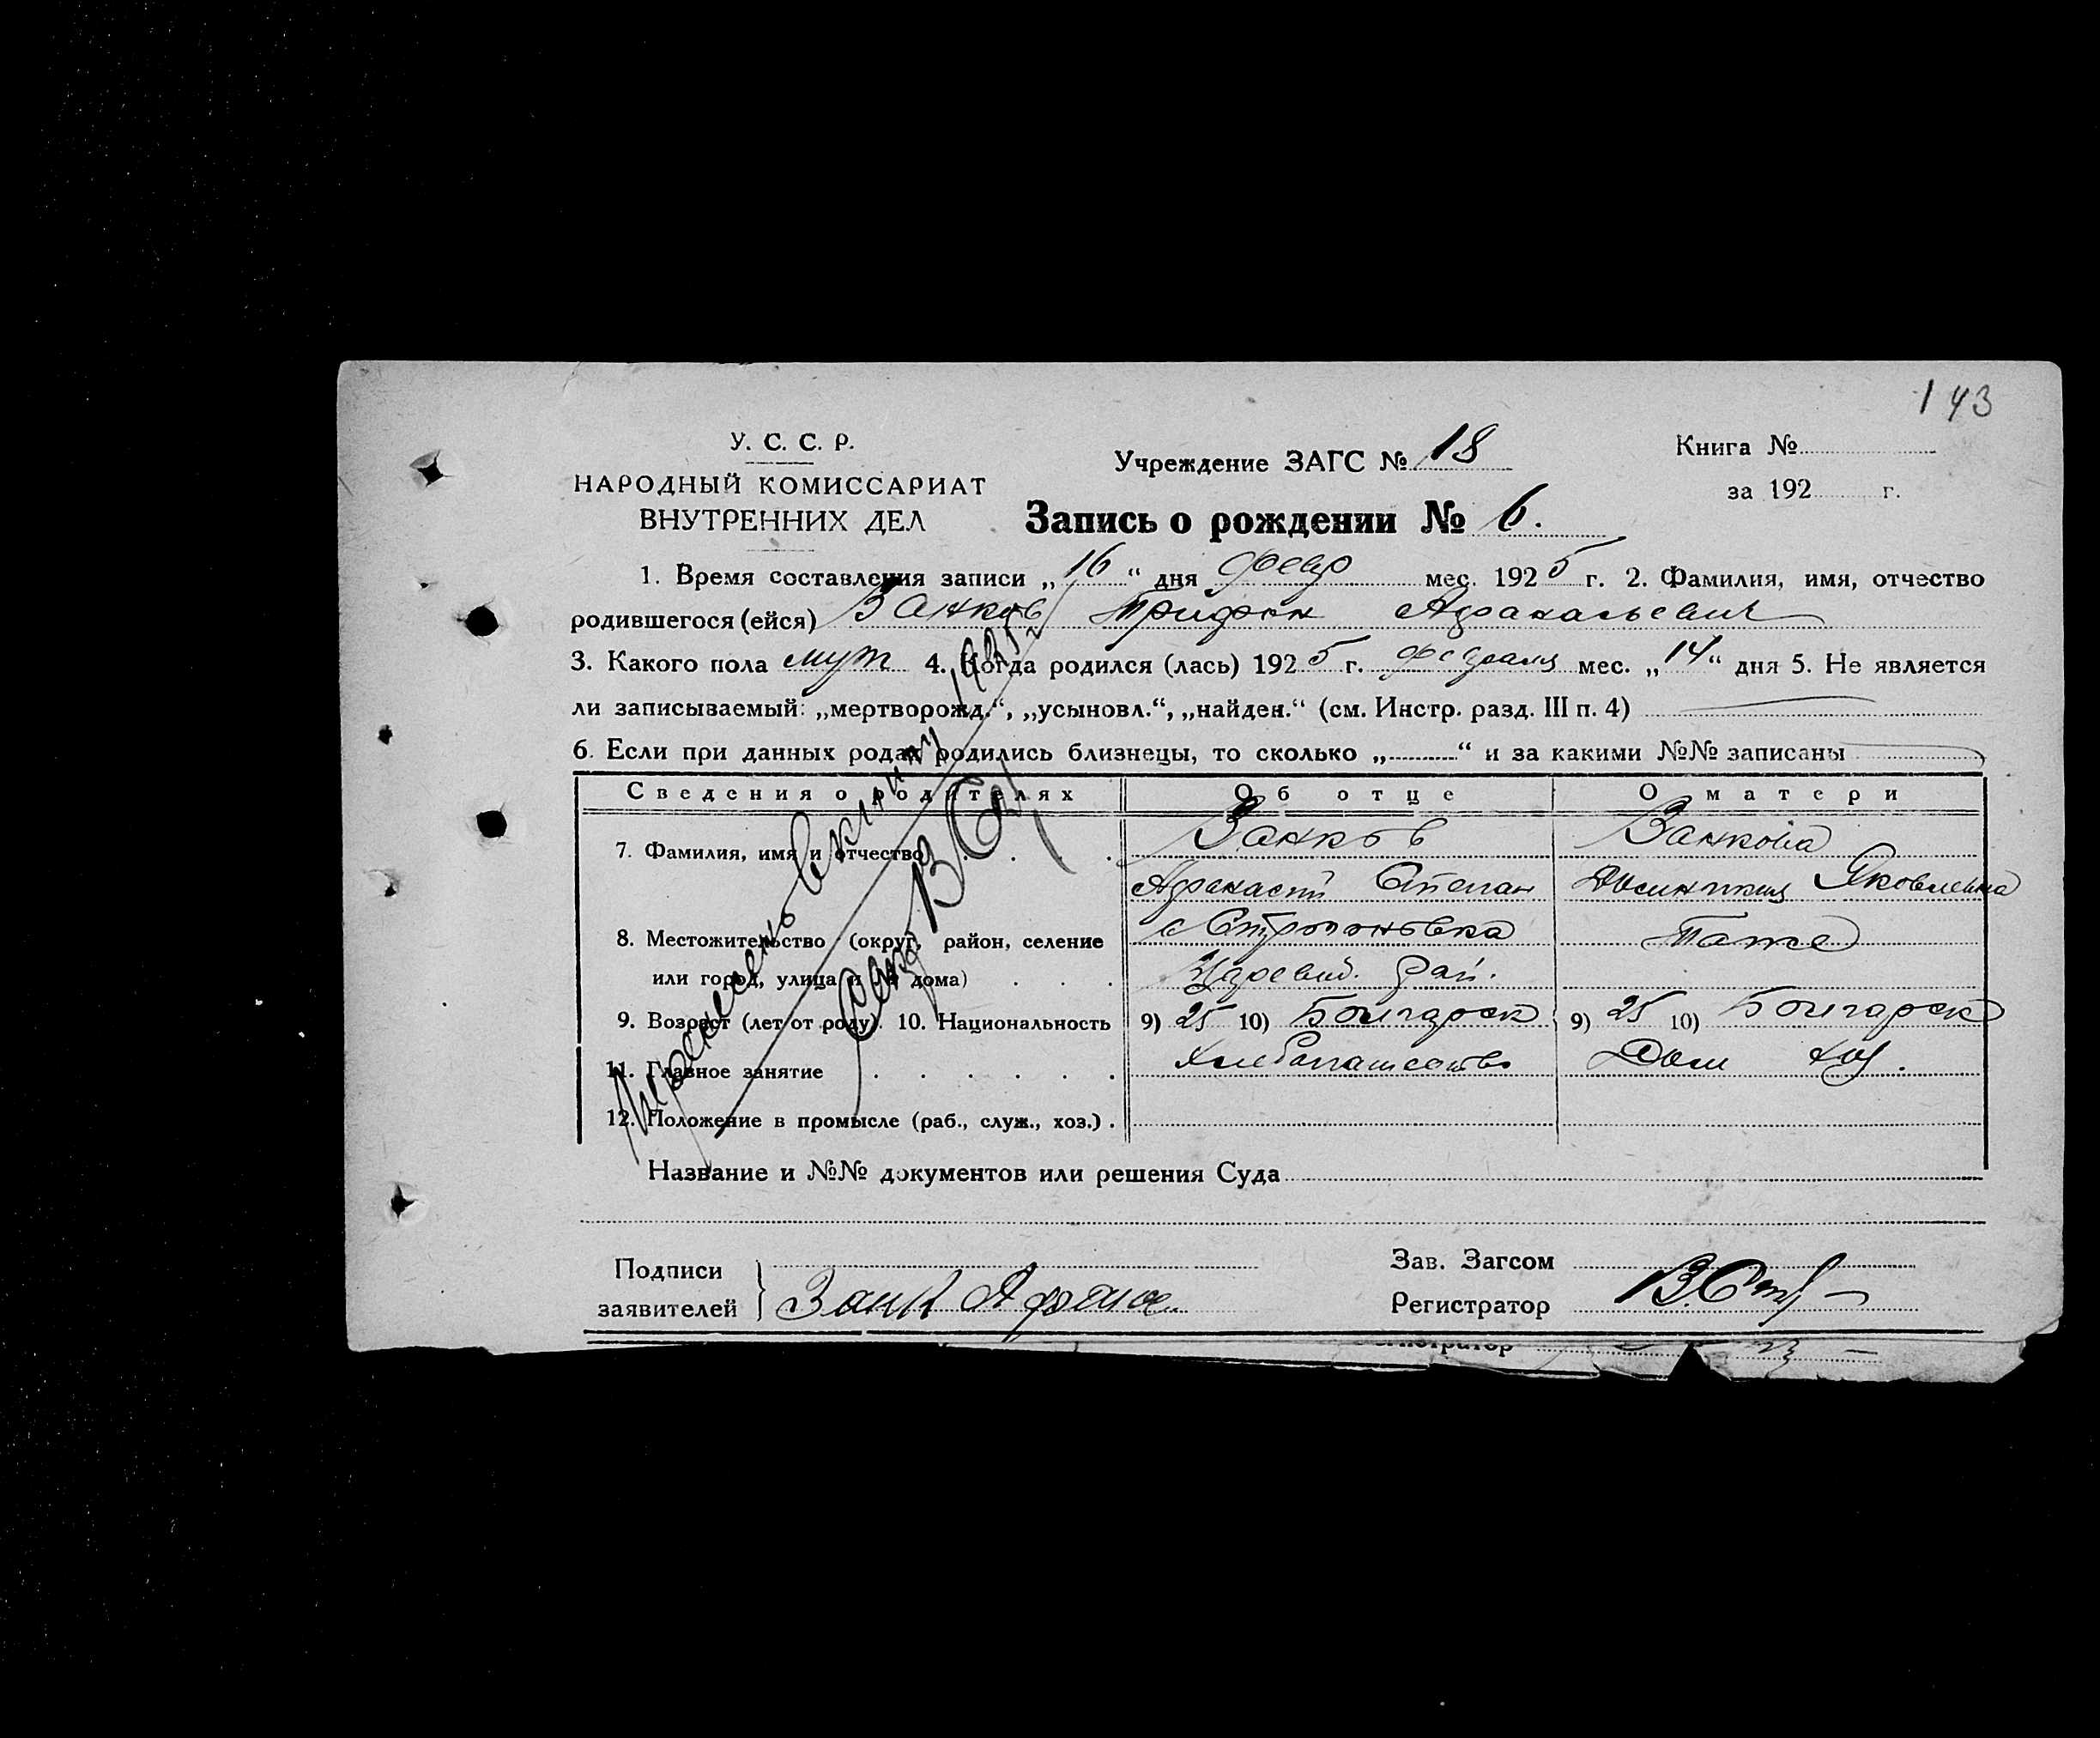 143
У. С. С. Р.
НАРОДНЫЙ КОМИССАРИАТ
ВНУТРЕННИХ ДЕЛ
Учреждение ЗАГС № 18
Книга №
за 192 г.
Запись о рождении № 6.
1. Время составления записи „16“ дня февр мес. 1925 г. 2. Фамилия, имя, отчество
родившегося (ейся) Занков Трифон Афанасьевич
3. Какого пола муж 4. Когда родился (лась) 1925 г. февраля мес. „14“ дня 5. Не является
ли записываемый: „мертворожд.“, „усыновл.“, „найден.“ (см. Инстр. разд. III п. 4)
6. Если при данных родах родились близнецы, то сколько „ “ и за какими №№ записаны
Сведения о родителях Об отце О матери
7. Фамилия, имя и отчество Занков Занкова
Афанасий Степан Яковлевна
8. Местожительство (округ, район, селение с Строгоновка Тоже
или город, улица и № дома) рай.
9. Возраст (лет от роду). 10. Национальность 9) 25 10) Болгарск 9) 25 10) Болгарск
11. Главное занятие Хлебопашество Дом хоз.
12. Положение в промысле (раб., служ., хоз.)
книгу 1925 г
Название и №№ документов или решения Суда
Подписи
заявителей Занк Афанас
Зав. Загсом
Регистратор